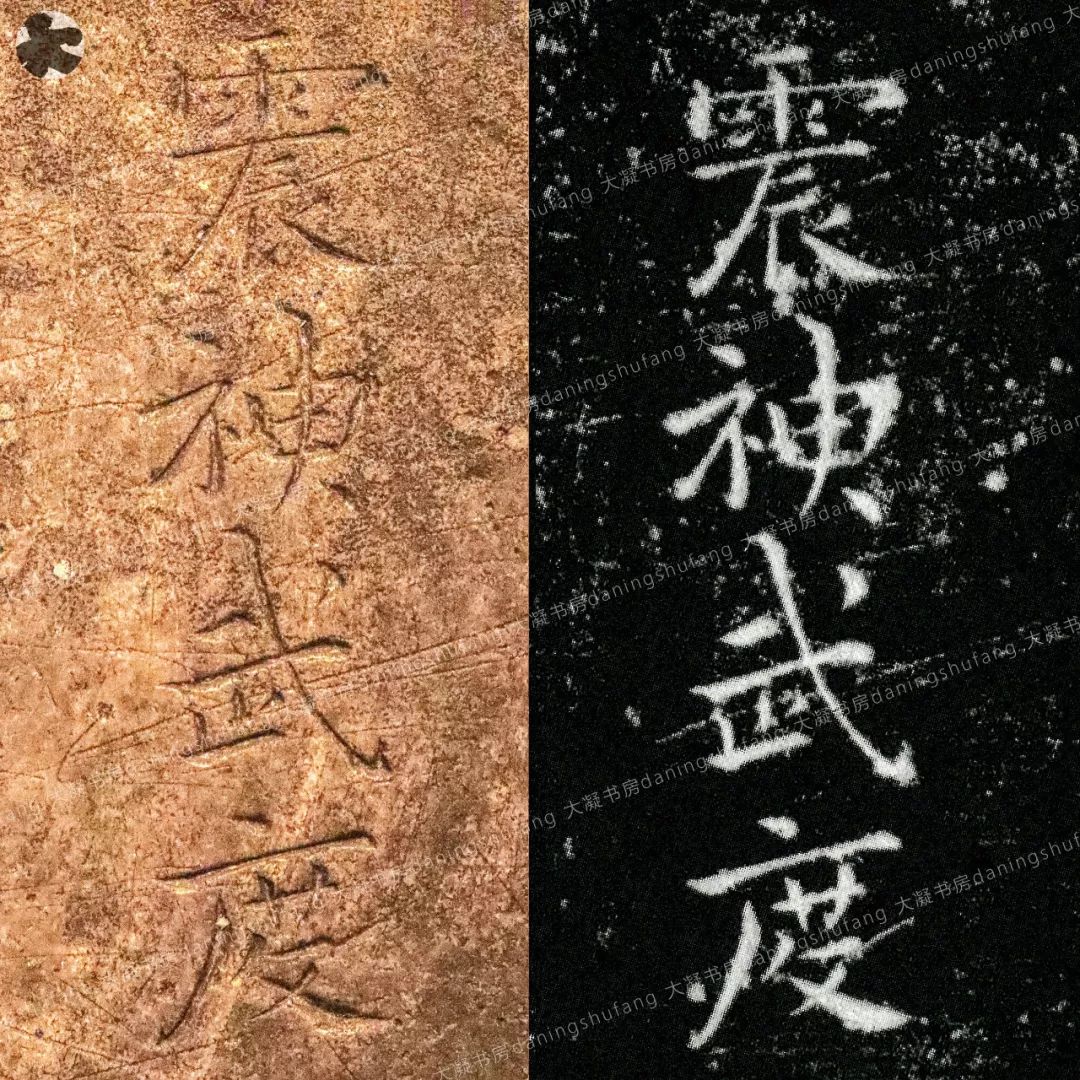 震神武度
震神武度
大凝书房daningshufang